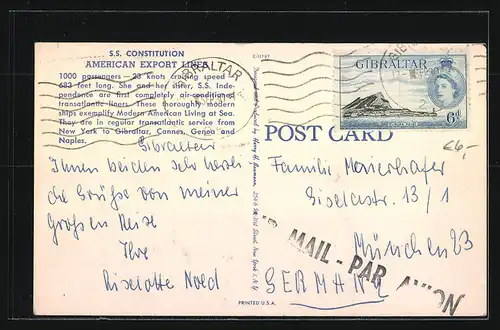 S.S. CONSTITUTION
AMERICAN EXPORT LINES
1000 passengers — 23 Knots cruising speed
683 feet long. She and her sister, S.S. Inde-
pendence are first completely air-conditioned
transatlantic liners. These thoroughly modern
ships exemplify Modern American Living at Sea.
They are in regular transatlantic service from
New York to Gibraltar, Cannes, Genoa and
Naples.
Gibraltar
Ihnen beiden sehr herzli
die Grüße von meiner
Großen Reise
Ihre
Liselotte Noed
PRINTED U.S.A.
GIBRALTAR
GIBRALTAR
6d
POST CARD
€6,-
Familie
Giselastr. 13/1
München 23
GERMANY
MAIL - PAR AVION